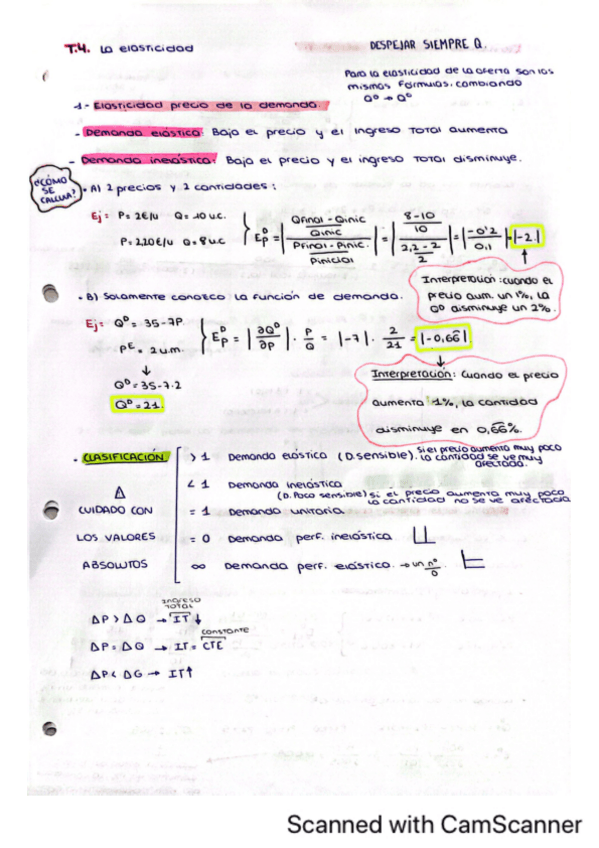 T.4. La elasticidad
DESPEJAR SIEMPRE Q.
Para la elasticidad de la oferta son las
mismas fórmulas, cambiando
Qᴰ → Qᵒ
1- Elasticidad precio de la demanda.
- Demanda elástica: Baja el precio y el Ingreso Total aumenta
- Demanda inelástica: Baja el precio y el ingreso Total disminuye.
¿CÓMO SE CALCULA?
• A) 2 precios y 2 cantidades:
Ej: P= 2€/u Q= 10 u.c.
P= 2,20€/u Q= 8 u.c
E_P^D = | ((Qfinal - Qinic) / Qinic) / ((Pfinal - Pinic.) / Pinicial) | = | ((8-10) / 10) / ((2,2-2) / 2) | = | -0'2 / 0,1 | = |-2|
Interpretación: cuando el
precio aum. un 1%, la
Qᴰ disminuye un 2%.
• B) Solamente conozco la función de demanda.
Ej: Qᴰ = 35-7P.
Pᴱ = 2 u.m.
E_P^D = | ∂Qᴰ / ∂P | · P/Q = |-7| · 2/21 = |-0,66|.
↓
Qᴰ = 35-7·2
Qᴰ = 21.
Interpretación: Cuando el precio
aumenta 1%, la cantidad
disminuye en 0,66%.
• CLASIFICACIÓN
> 1 Demanda elástica (D.sensible). Si el precio aumenta muy poco
la cantidad se ve muy
afectada.
< 1 Demanda inelástica
(D. Poco sensible) si el precio aumenta muy poco
la cantidad no se ve afectada
= 1 Demanda unitaria.
= 0 Demanda perf. inelástica.
∞ Demanda perf. elástica. → un nº/0
△
CUIDADO CON
LOS VALORES
ABSOLUTOS
INGRESO
TOTAL
ΔP > ΔQ → IT ↓
CONSTANTE
ΔP = ΔQ → IT = CTE
ΔP < ΔQ → IT ↑
Scanned with CamScanner